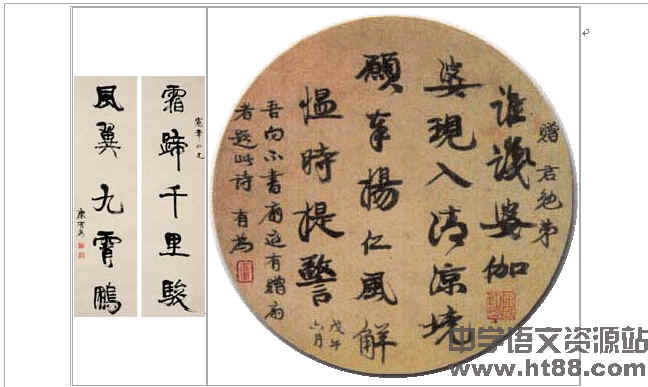 霜蹄千里駿
風翼九霄鵬
康有為
贈君勉弟
誰識婆伽
婆現入清涼境
願奉揚仁風解
愠時提警
戊午
六月
吾向不書扇近有贈扇
者題此詩 有為
中学语文资源站
www.ht88.com